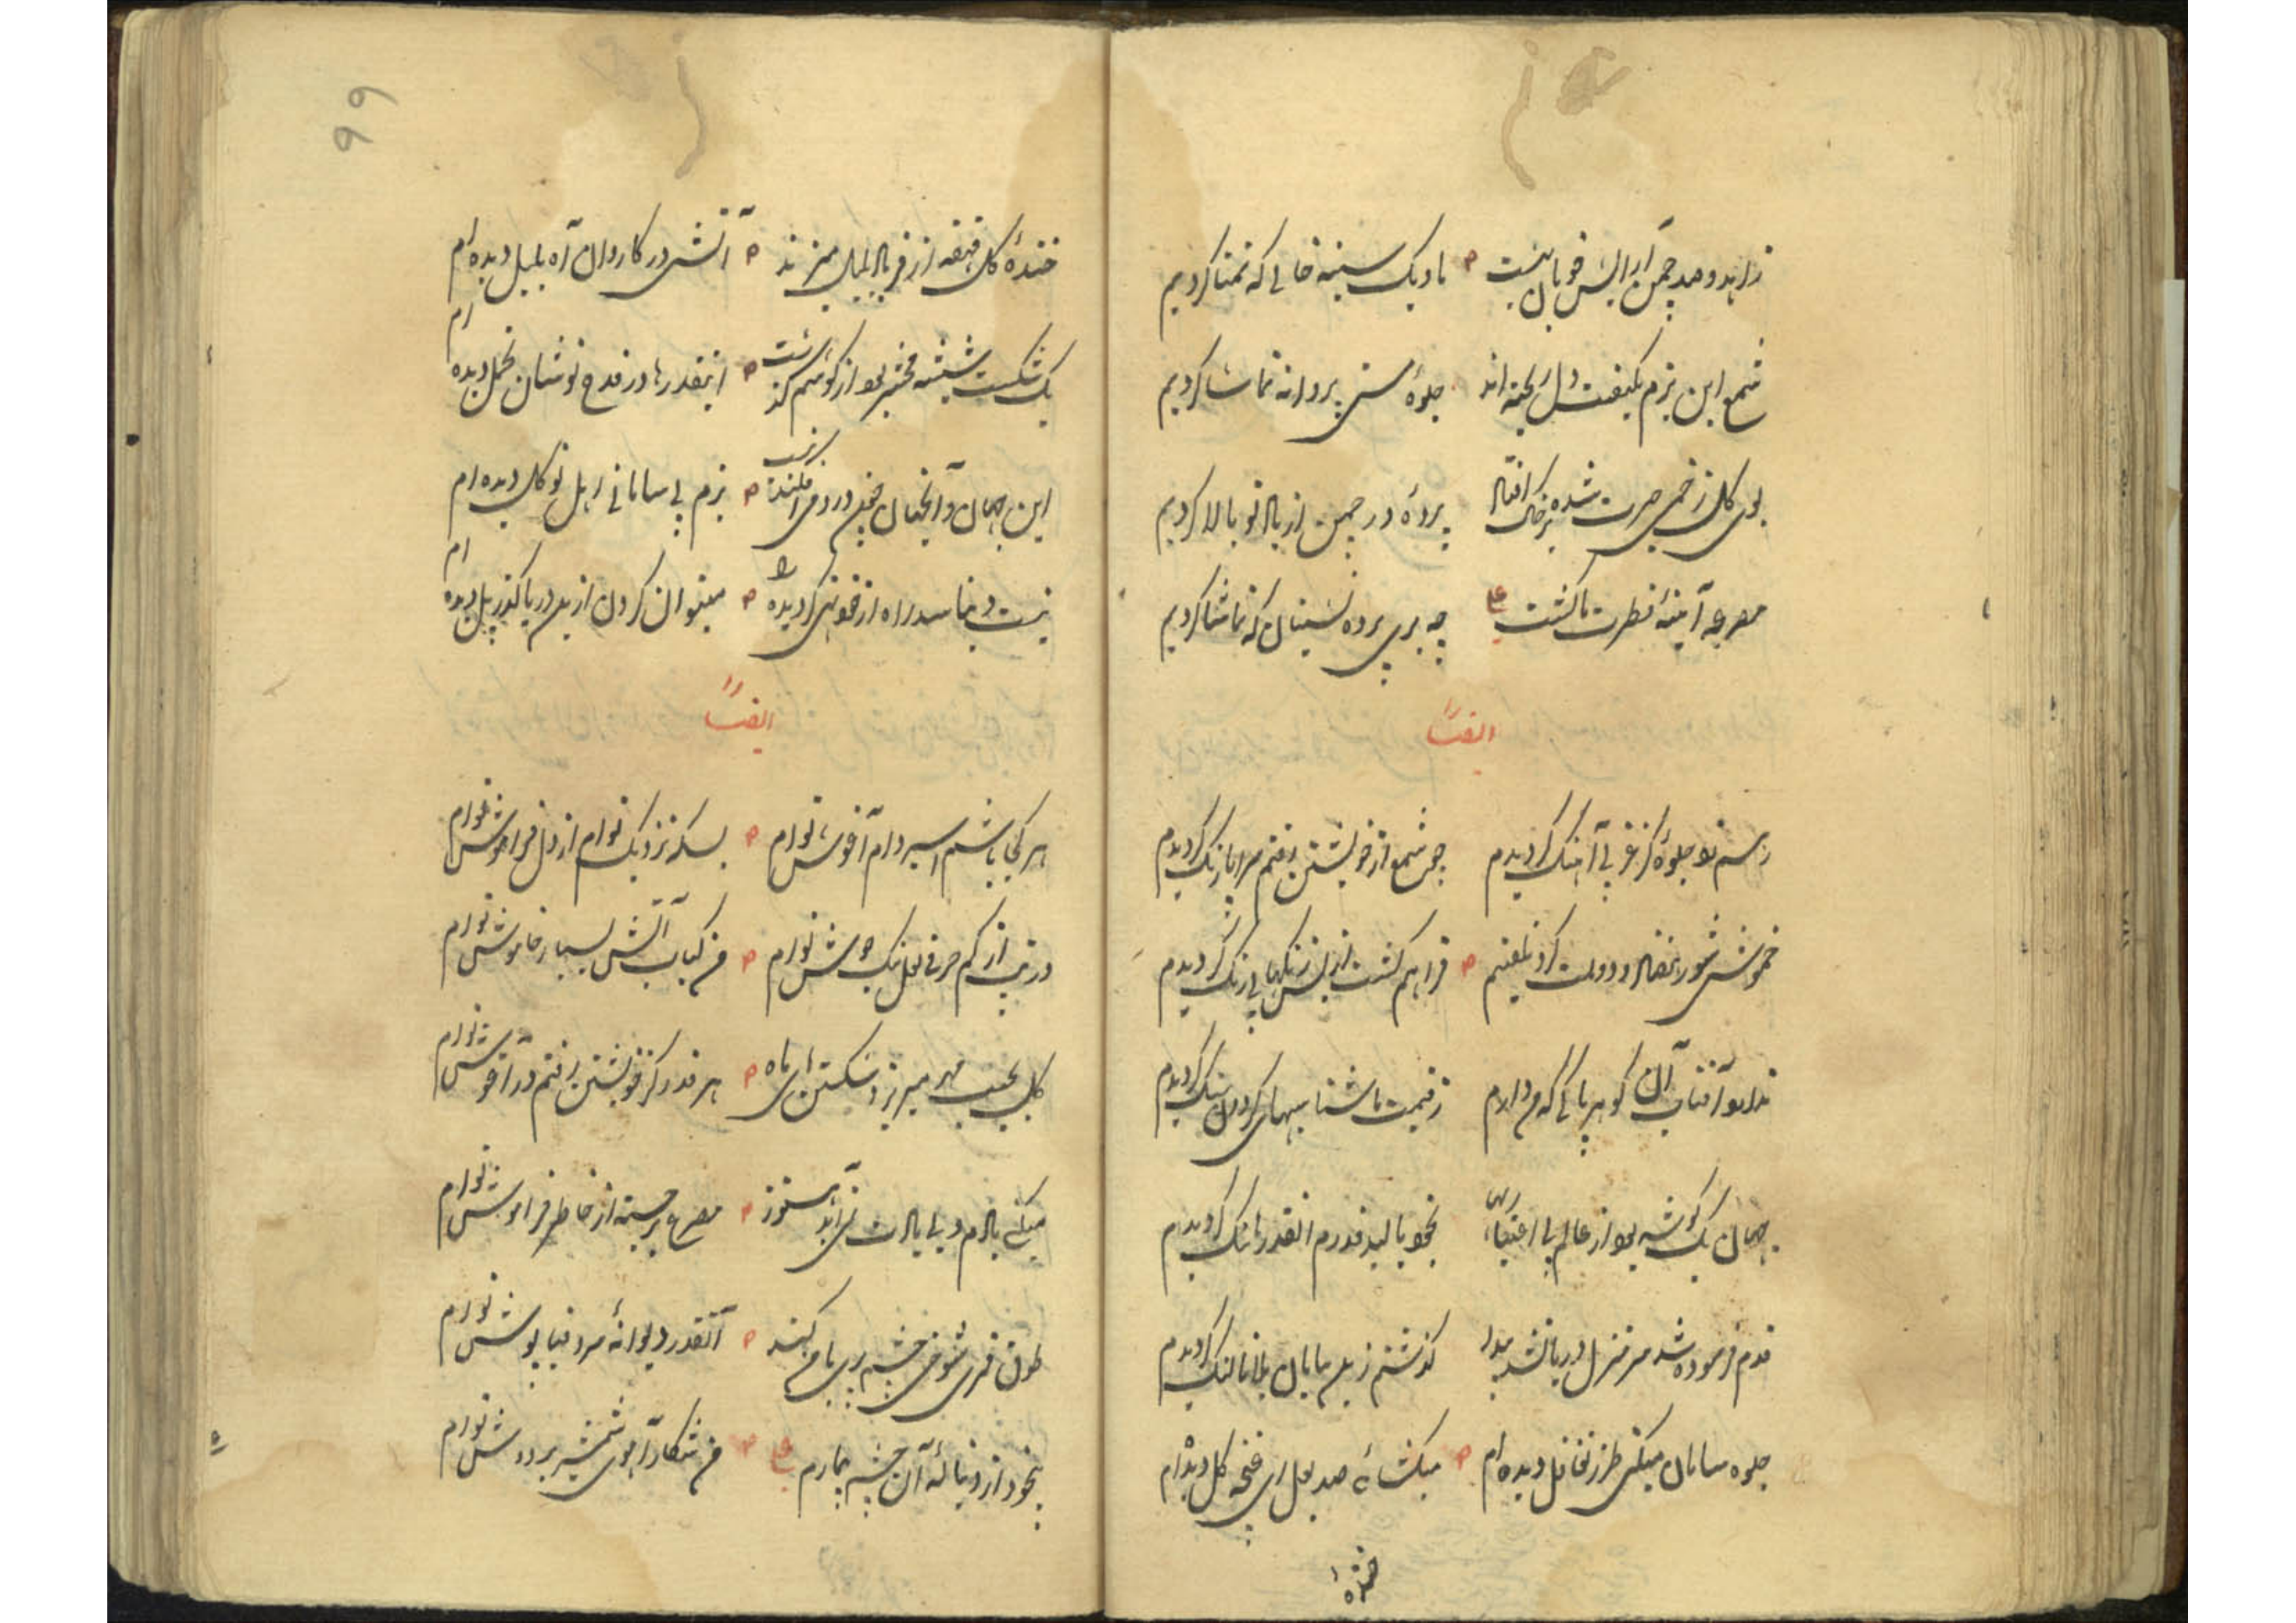 زاهد و صد چمن آرایش خوبان بهشت ما و یک سینه خالی که تمنا کردیم
شمع این بزم بکیفیت دل ریخته اند جلوهٔ مستی پروانه تماشا کردیم
بوی گل زخمی حیرت شده بر خاک افتاد پردهٔ در چمن از یاد تو بالا کردیم
مصرعه آیینهٔ فطرت ما گشت علی چه پری پرده نشینان که تماشا کردیم
ایضاً
ز رسم نو جلوهٔ کز غر بی آهنگ گردیدم چون شمع از خویشتن رفتم سراپا رنگ گردیدم
خموشی شور فراهم گشت از بس رنگهای بی رنگ گردیدم
ندارد آفتاب آن گوهر پاکی که من دارم ز قیمت ناشناسیهای گردون سنگ گردیدم
جهان یک گوشه بود از عالم بی اعتباریها بخود بالید قدرم آنقدر تا تنگ گردیدم
قدم فرسوده شد سر منزل دریا نشد پیدا گذشتم ز بیابان بلا تا لنگ گردیدم
جلوه سامان میکنی طرز تغافل دیده ام میکشائی صد بغل ای غنچه گل دیده ام
خندهٔ
۹۹
خندهٔ گل قهقهه از فریاد بلبل میزند آتشی در کاروان آه بلبل دیده ام
یک شکست شیشه محشر بود از گوشم گذشت اینقدرها در قدح نوشان تحمل دیده ام
این جهان و آنجهان بزم بی سامانی اهل توکل دیده ام
نیست دنیا سد راه از خود گردیده را میتوان کردن از دریا گذر پل دیده ام
ایضاً
هر کجا باشم اسیر دام آغوش توام بسکه نزدیک توام از دل فراموش توام
از کم حرفی لعل نمک جوش توام من کباب آتش بسیار خاموش توام
گل بجیب مهر میریزد شکستن های ماه هر قدر کز خویشتن رفتم در آغوش توام
میکنی یادم ولی یادت نمی آید هنوز مصرع برجسته از خاطر فراموش توام
طوق قمری شوخی چشم پری با من کند آنقدر دیوانهٔ سرو قباپوش توام
بیخود از دنبالهٔ آن چشم بیمارم علی من شکار آهوی شمشیر بر دوش توام